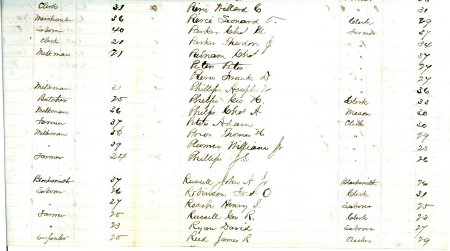 Clerk 33 Rene Willard C 31
Merchant 36 Pierce Leonard Clerk 29
Laborer 40 Parker Chas Farmer 37
Clerk 21 Parker Theodore J " 34
Milkman 21 Putnam Chas " 37
Peter " 27
Frank " 27
Milkman 31 Phillips Joseph 36
Butcher 25 Phelps Geo H. Clerk 33
Milkman 36 Phelps Chas A Mason 20
Farmer 37 Adam Clerk 20
Milkman 38 Prior Thomas " 29
" 39 Plumer William J " 23
Farmer 24 Phillips J.S. " 26
Blacksmith 37 Russell John A Blacksmith 26
Laborer 26 Robinson Fred O Clerk 31
" 27 Roach Henry S. Laborer 25
Farmer 25 Russell Geo R. Clerk 23
" 22 Ryan David Laborer 27
Carpenter 25 Reed James R Teacher 29